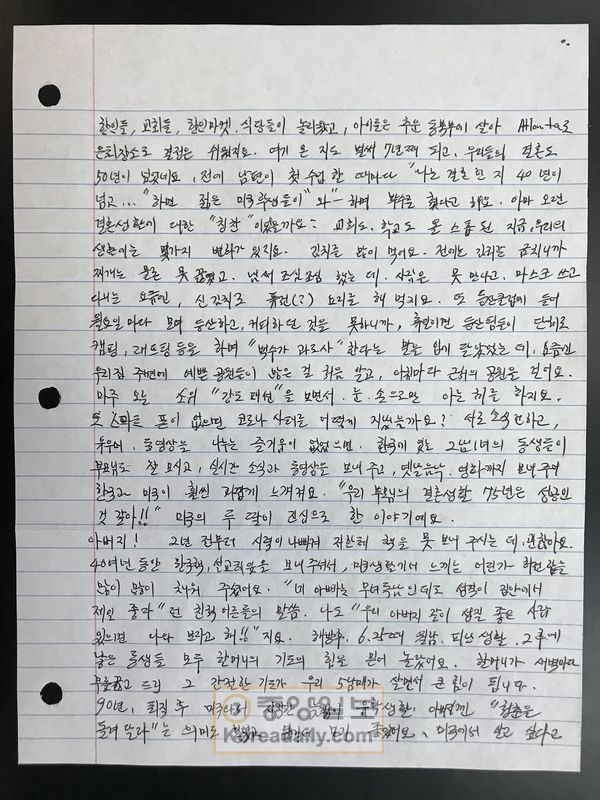 한인들, 교회들, 한인마켓, 식당들이 놀라웠고, 아이들은 추운 동북부에 살아 Atlanta로
은퇴장소로 결정은 쉬웠지요. 여기 온 지도 벌써 7년째 되고, 우리들의 결혼도
50년이 넘었네요, 전에 남편이 첫 수업 할 때마다 "나는 결혼한 지 40년이
넘고..." 하면 젊은 미국학생들이 "와-" 하며 박수를 쳤다고 해요. 아마 오랜
결혼생활에 대한 "칭찬"이었을까요? 교회도, 학교도 온 스톱된 지금, 우리의
생활에는 몇가지 변화가 있지요. 김치를 많이 먹어요. 전에는 김치를
찌개는 물론 못 끓였고, 냄새 조심조심 했는데, 사람을 못 만나고, 마스크 쓰고
다니는 요즘엔, 신김치로 퓨전(?) 요리를 해 먹지요. 또 등산클럽에 들어
월요일마다 모여 등산하고, 커피하던 것을 못하니까, 등산팀들이 단체로
캠핑, 래프팅 등을 하며 "백수가 과로사" 한다는 말을 입에 달았었는데, 요즘엔
우리집 주변에 예쁜 공원들이 많은 걸 처음 알고, 아침마다 근처의 공원을 걸어요.
마주 오는 소위 "강도 패션"을 보면서, 눈·손으로만 아는 체를 하지요.
또 스마트 폰이 없으면 코로나 사태를 어떻게 지냈을까요? 서로 소식 전하고,
동영상을 나누는 즐거움이 없었으면. 한국에 있는 2남1녀의 동생들이
부모님도 잘 모시고, 실시간 소식과 동영상을 보내 주고, 옛날음악, 영화까지 보내주며
한국과 미국이 훨씬 가깝게 느껴져요. "우리 부모님의 결혼생활 75년은 성공인
것 같아!!" 미국의 두 딸이 진심으로 한 이야기예요.
아버지! 2년 전부터 시력이 나빠져 저한테 책을 못 보내 주시는 데, 괜찮아요.
40여년 동안 한국책, 선교회보를 보내 주셔서, 미국생활에서 느끼는 어떤가 허전함을
많이 많이 채워 주셨어요. "네 아빠는 무녀독남인데도 성격이 집안에서
제일 좋다"던 친척어른들의 말씀. 나도 "우리 아버지 같이 성질 좋은 사람
있으면 나와 보라고 해!!" 지요. 해방후, 6.25때 월남, 피난생활, 그후에
낳은 동생들 모두 할머니의 기도의 힘을 믿어 놀랐어요. 할머니가 새벽마다
무릎꿇고 드린 그 간절한 기도가 우리 5남매가 살면서 큰 힘이 됩니다.
90년, 퇴직 후 미국에서 유학생활, 아버지껜 "청춘을
돌려 달라"는 의미도 좋았어요. 미국에서 살고 싶다고
중앙일보
Koreadaily.com